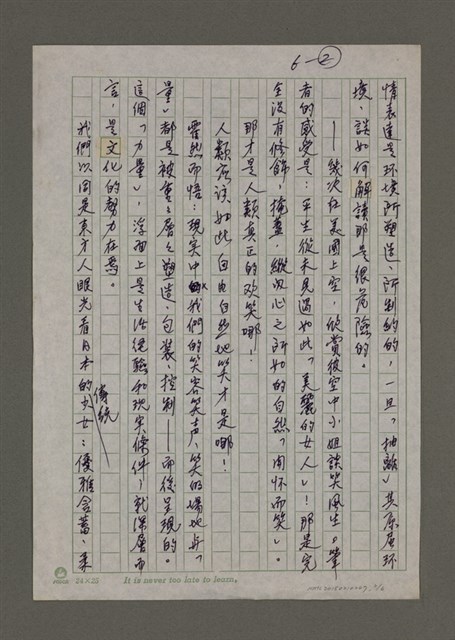 6—②
情表達是环境所塑造、所制約的，一旦「抽離」其原居环
境，談如何解讀那是很危險的。
——幾次在美國上空，欣賞彼空中小姐談笑風生。筆
者的感覺是：平生從未見過如此「美麗的女人」！那是完
全沒有修飾，掩蓋，縱內心之所如的自然「開怀而笑」。
那才是人類真正的欢笑哪！
人類應該如此自由自然地笑才是哪！
霍然而悟：現实中我們的笑容笑声、笑的場地与「
量」都是被重々層々塑造、包裝、控制——而後呈現的。
這個「力量」，浮面上是生活經驗和現实條件，就深層而
言，是文化的勢力在焉。
我們以同是東方人眼光看日本的傳統少女：優雅含蓄、柔
24×25
It is never too late to learn.